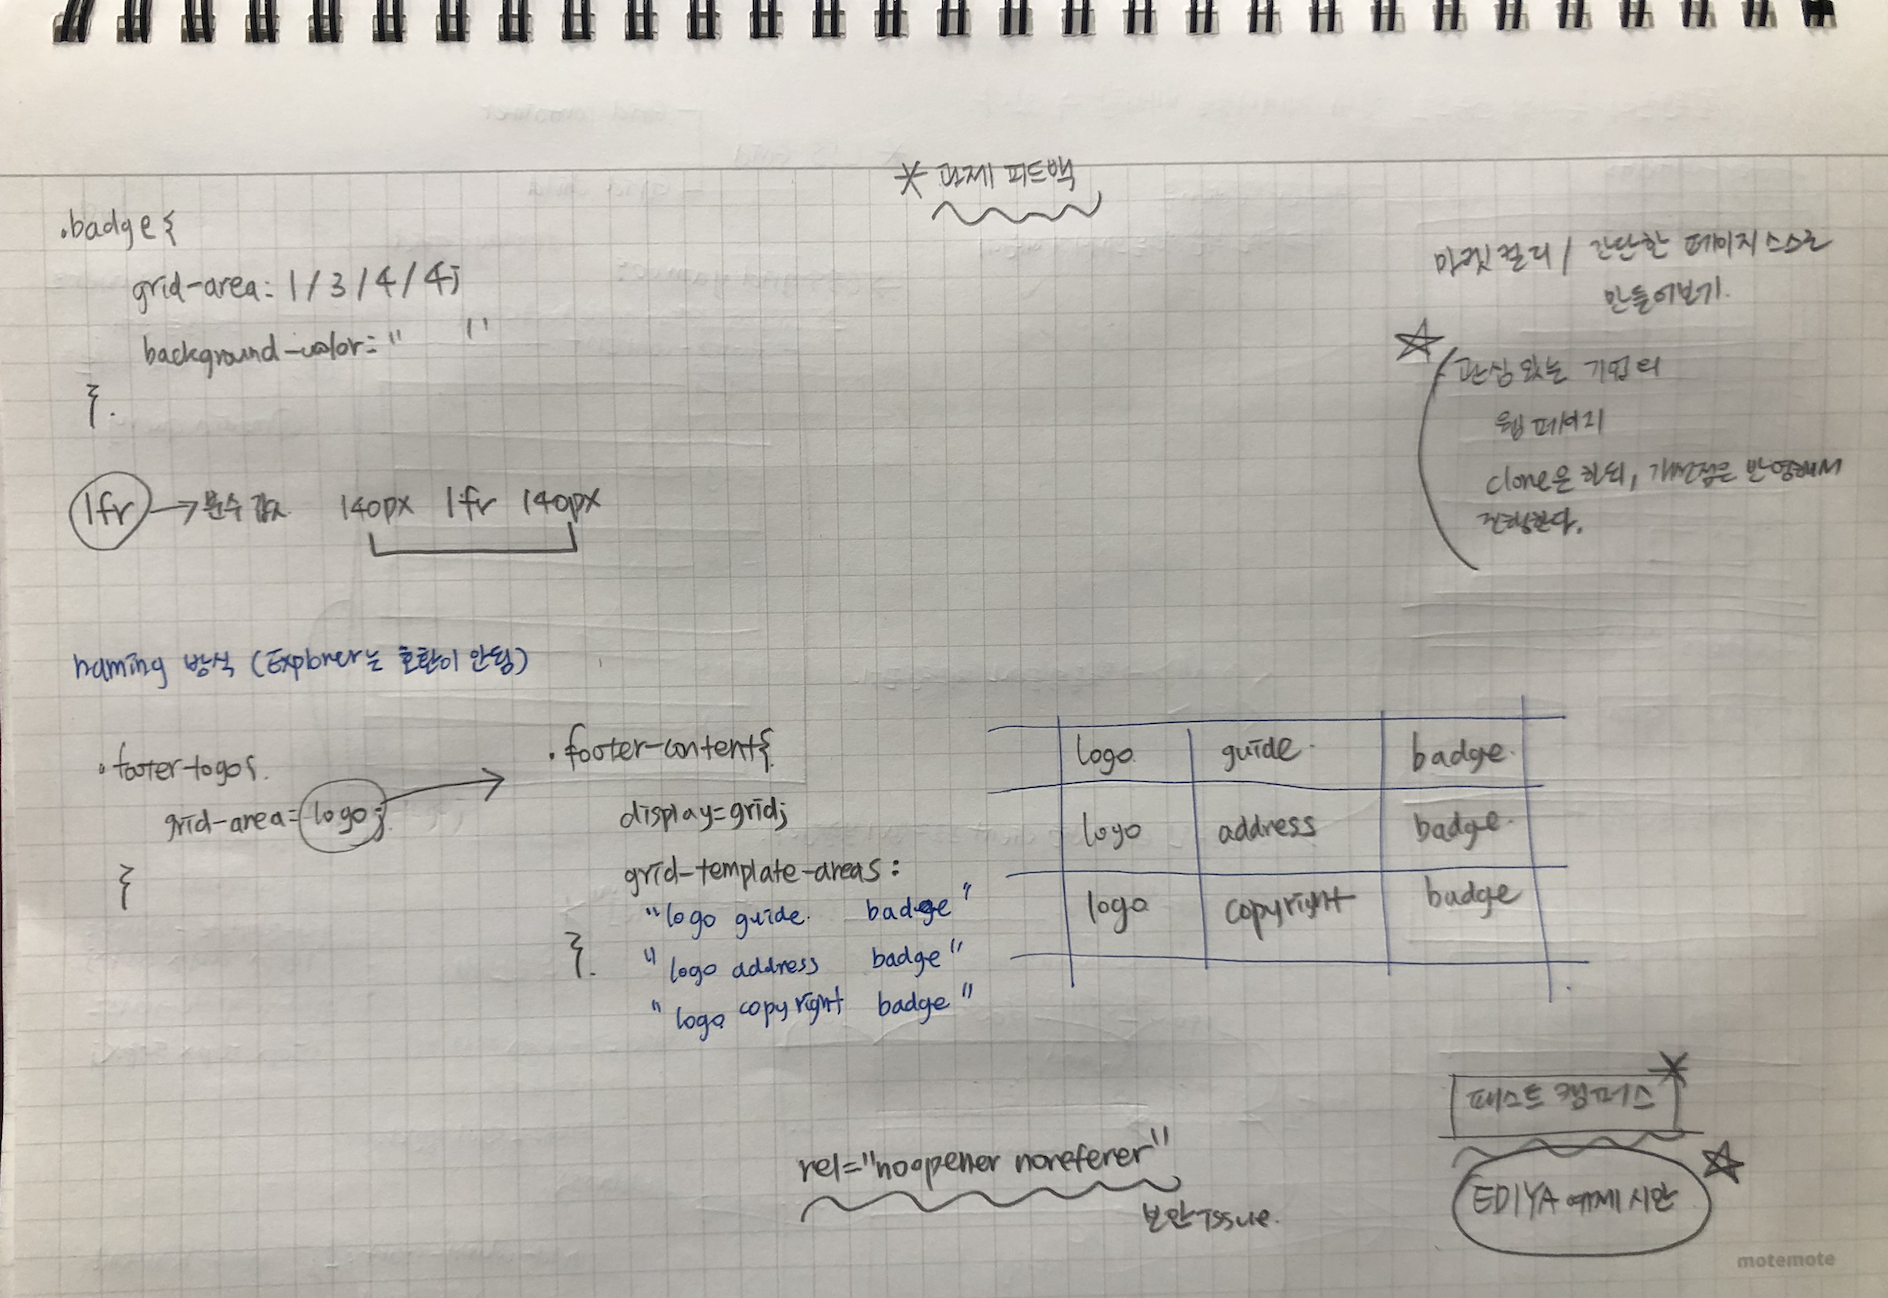 * 과제 피드백
.badge {
grid-area: 1 / 3 / 4 / 4;
background-color: " "
}.
1fr → 분수 값 140px 1fr 140px
마켓컬리 / 간단한 페이지 스스로
만들어보기.
관심 있는 기업의
웹 페이지
clone은 하되, 개선점은 반영해서
진행한다.
naming 방식 (Explorer는 호환이 안됨)
.footer-logo{.
grid-area= logo;
}
.footer-content{
display=grid;
grid-template-areas:
"logo guide. badge"
"logo address badge"
"logo copyright badge"
}.
logo. guide. badge.
logo address badge.
logo copyright badge
rel="noopener noreferer"
보안 Issue.
패스트 캠퍼스
EDIYA 예제 시안
motemote